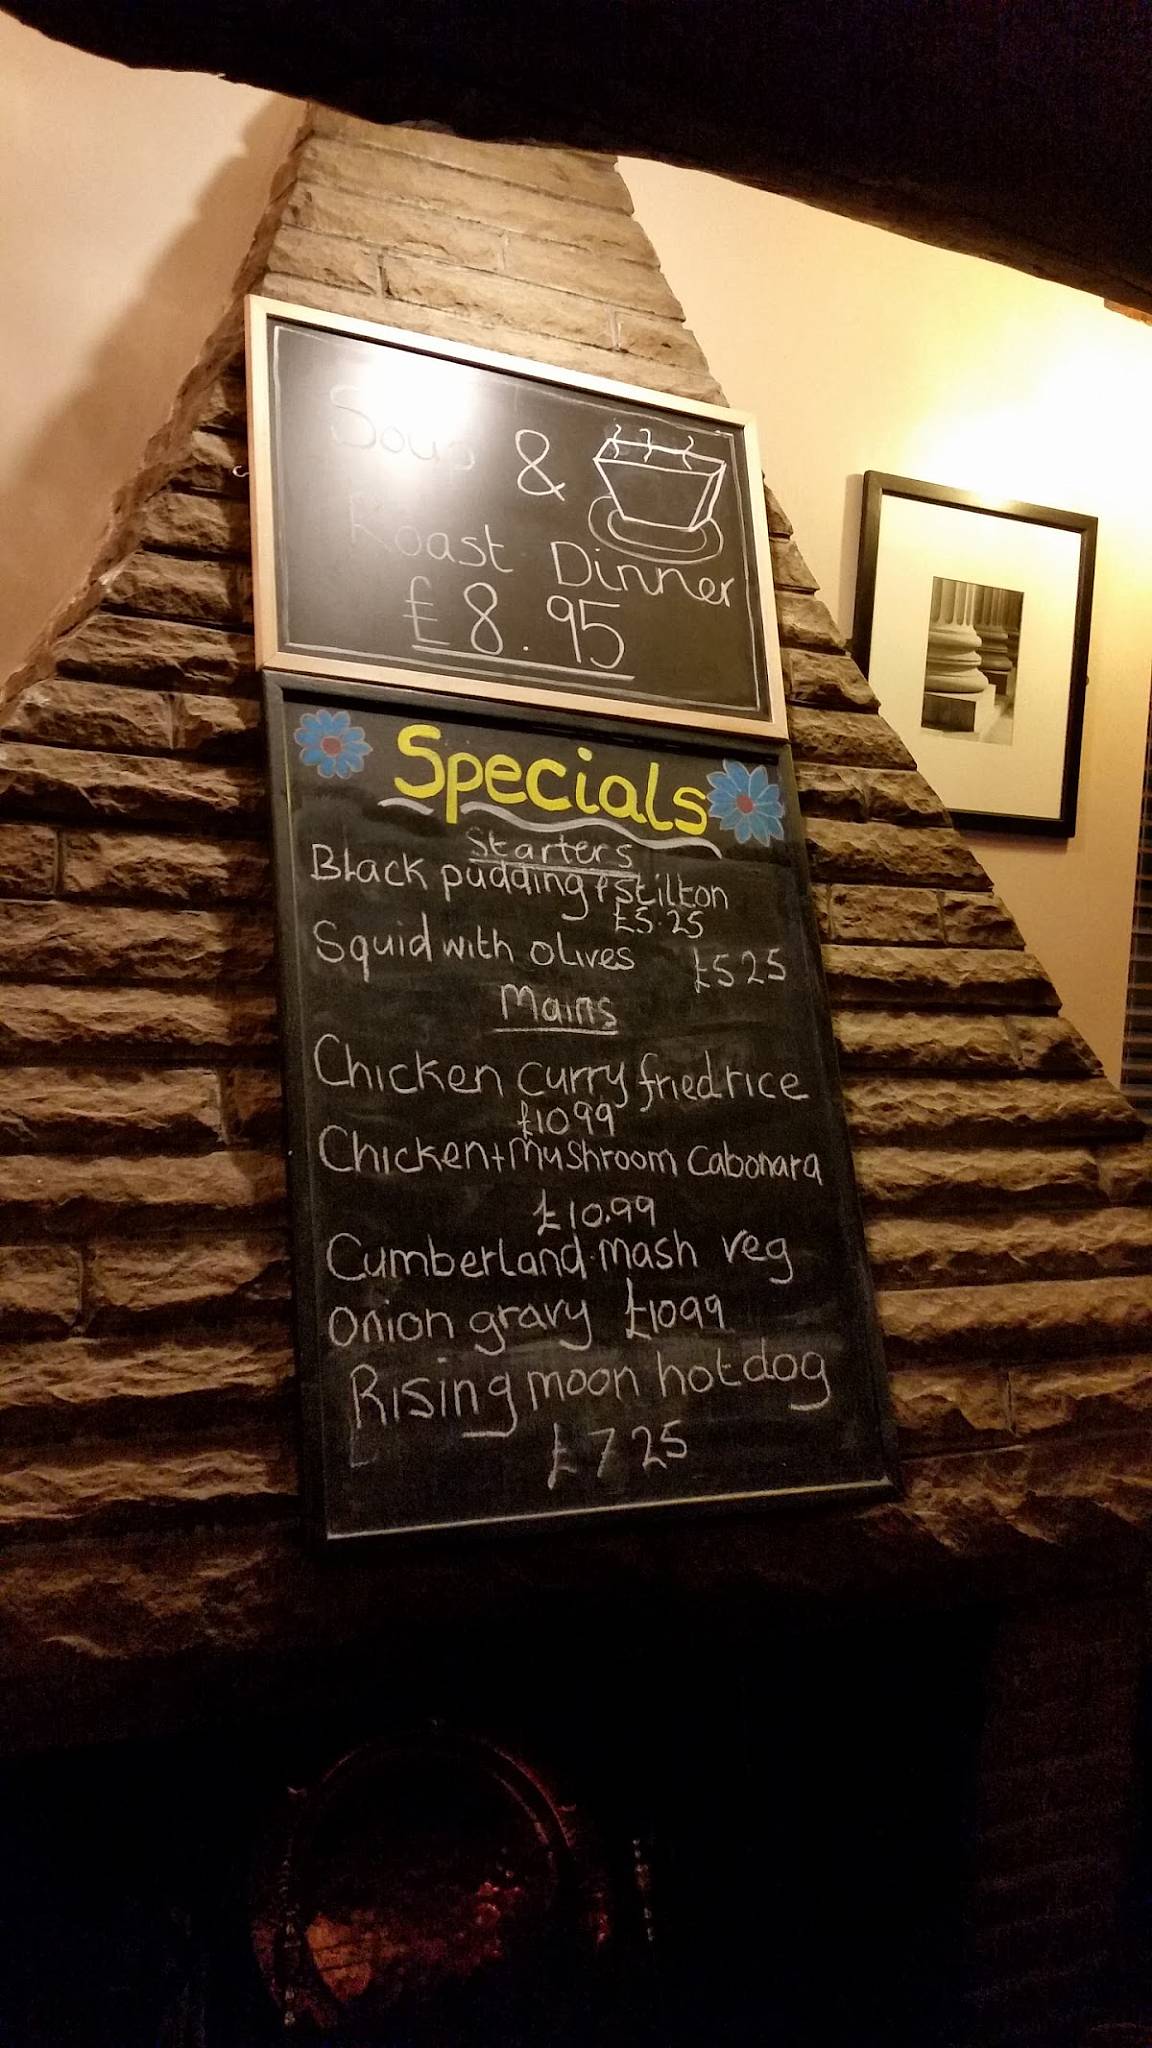 Soup &
Roast Dinner
£8.95
Specials
Starters
Black pudding & Stilton
£5.25
Squid with olives £5 25
Mains
Chicken curry fried rice
£10 99
Chicken + Mushroom Cabonara
£10.99
Cumberland mash veg
onion gravy £10 99
Rising moon hot dog
£7 25